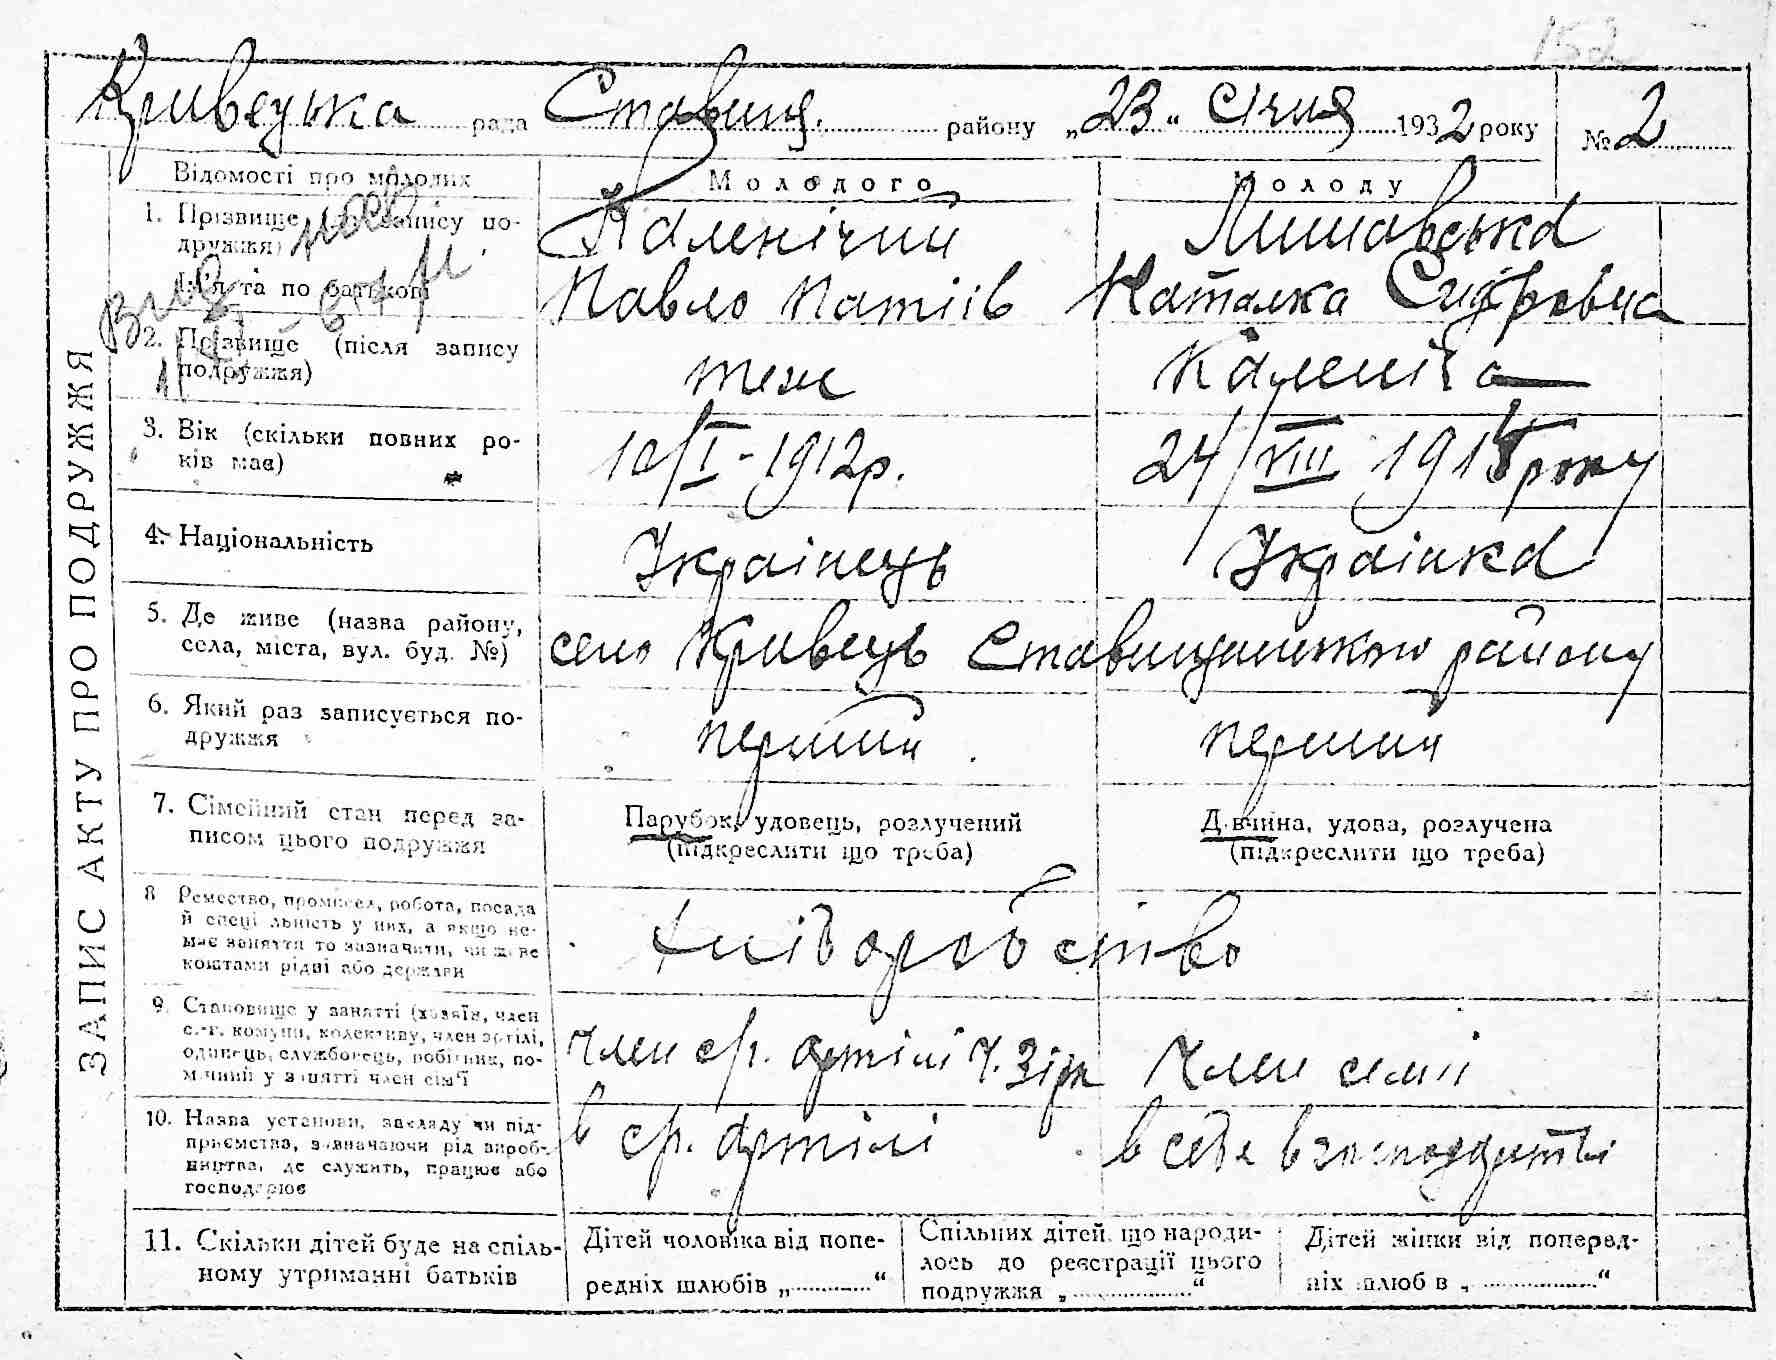 152
Кривецька рада Ставищ. району „23" Січня 1932 року № 2
ЗАПИС АКТУ ПРО ПОДРУЖЖЯ
Відомості про молодих Молодого Молоду
1. Прізвище (до запису подружжя) Каленічий Лишавська
Ім'я та по батькові Павло Патіїв Наталка Сидоровна
2. Прізвище (після запису подружжя) теж Каленіча
3. Вік (скільки повних років має) 10/I - 1912р. 24/VIII 1915 року
4. Національність Українець Українка
5. Де живе (назва району, села, міста, вул. буд. №) село Кривець Ставищанського району
6. Який раз записується подружжя перший перший
7. Сімейний стан перед записом цього подружжя Парубок, удовець, розлучений (підкреслити що треба) Дівчина, удова, розлучена (підкреслити що треба)
8 Ремество, промисел, робота, посада й спеціальність у них, а якщо немає заняття то зазначити, чи живе коштами рідні або держави хліборобство
9. Становище у занятті (хазяїн, член с.-г. комуни, колективу, член артілі, одинець, службовець, робітник, помічний у занятті член сім'ї член ср. артілі Ч. Зірк Член семії
10. Назва установи, закладу чи підприємства, зазначаючи рід виробництва, де служить, працює або господарює в ср. артілі в себе в господарстві
11. Скільки дітей буде на спільному утриманні батьків Дітей чоловіка від попередніх шлюбів „............" Спільних дітей, що народилось до реєстрації цього подружжя „............" Дітей жінки від попередніх шлюбів „............"